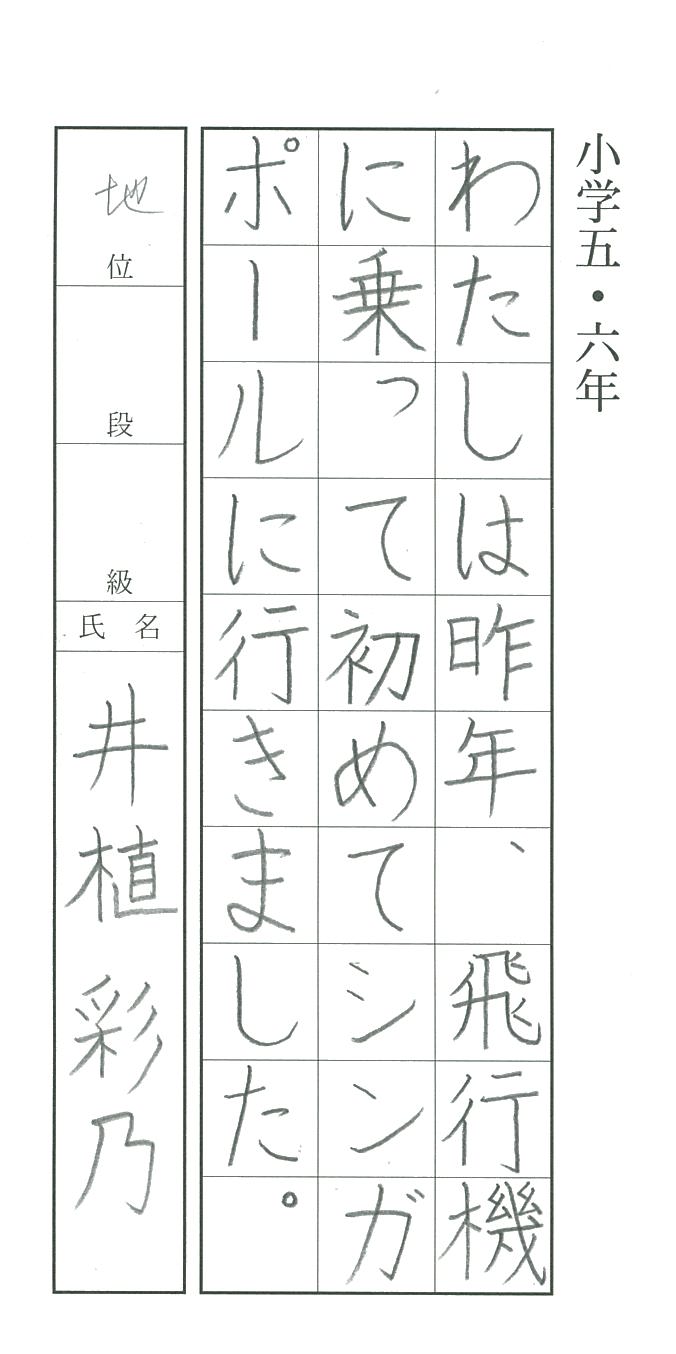 小学五・六年
わたしは昨年、飛行機
に乗って初めてシンガ
ポールに行きました。
地位
段
級
氏名
井植彩乃